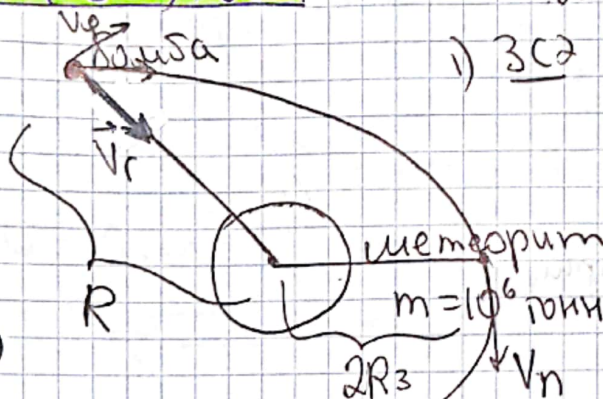 Vφ
бомба
1) ЗС2
Vr
метеорит
R
m = 10⁶ тонн
2Rз
Vп